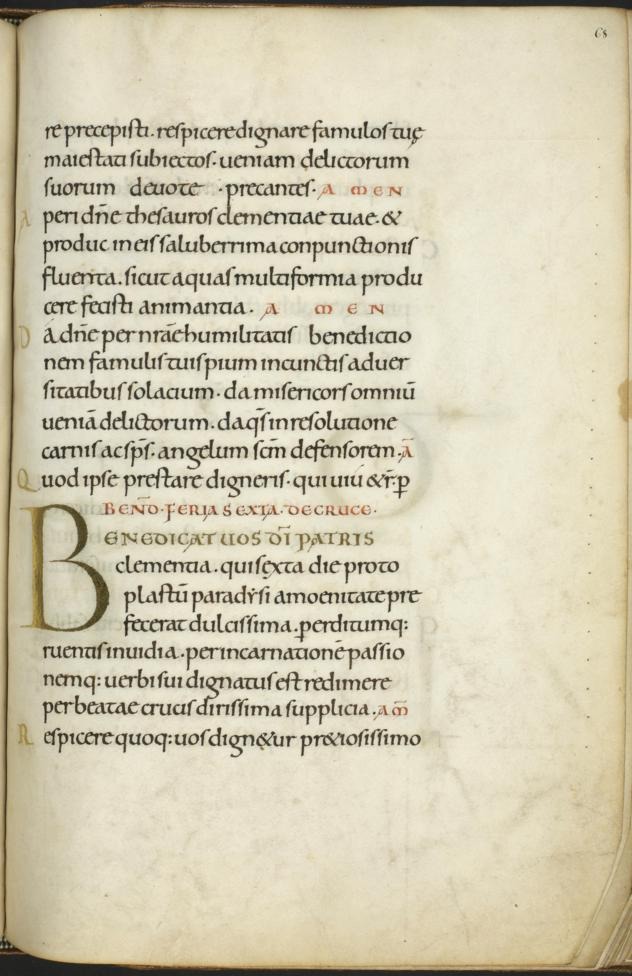 68
re precepisti. respicere dignare famulos tuę
maiestati subiectos. ueniam delictorum
suorum deuote · precantes. AMEN
Aperi dn̄e thesauros clementiae tuae. &
produc in eis saluberrima conpunctionis
fluenta. sicut aquas multiformia produ
cere fecisti animantia. AMEN
Da dn̄e per nr̄ae humilitatis benedictio
nem famulis tuis pium in cunctis aduer
sitatibus solacium. da misericors omniū
ueniā delictorum. da q̄s in resolutione
carnis ac sp̄s. angelum sc̄m defensorem. Ā
Quod ipse prestare digneris. qui uiu & r̄. ꝑ
BEND̄. FERIA SEXTA. DE CRUCE.
BENEDICAT UOS DĪ PATRIS
clementia. qui sexta die proto
plastū paradẏsi amoenitate pre
fecerat dulcissima. ꝑditumq:
ruentis inuidia. per incarnationē passio
nemq: uerbi sui dignatus est redimere
per beatae crucis dirissima supplicia. AM̄
Respicere quoq: uos dign&ur pr&iosissimo